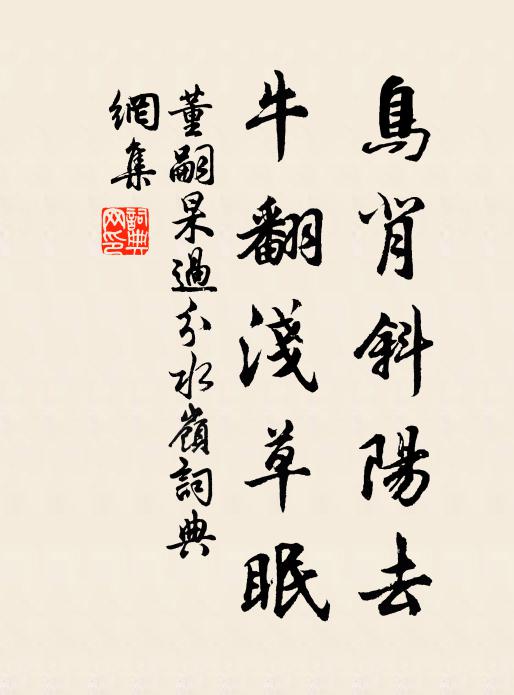 鳥背斜陽去
牛翻淺草眠
董嗣杲過分水嶺詞典
網集
詞典
网印